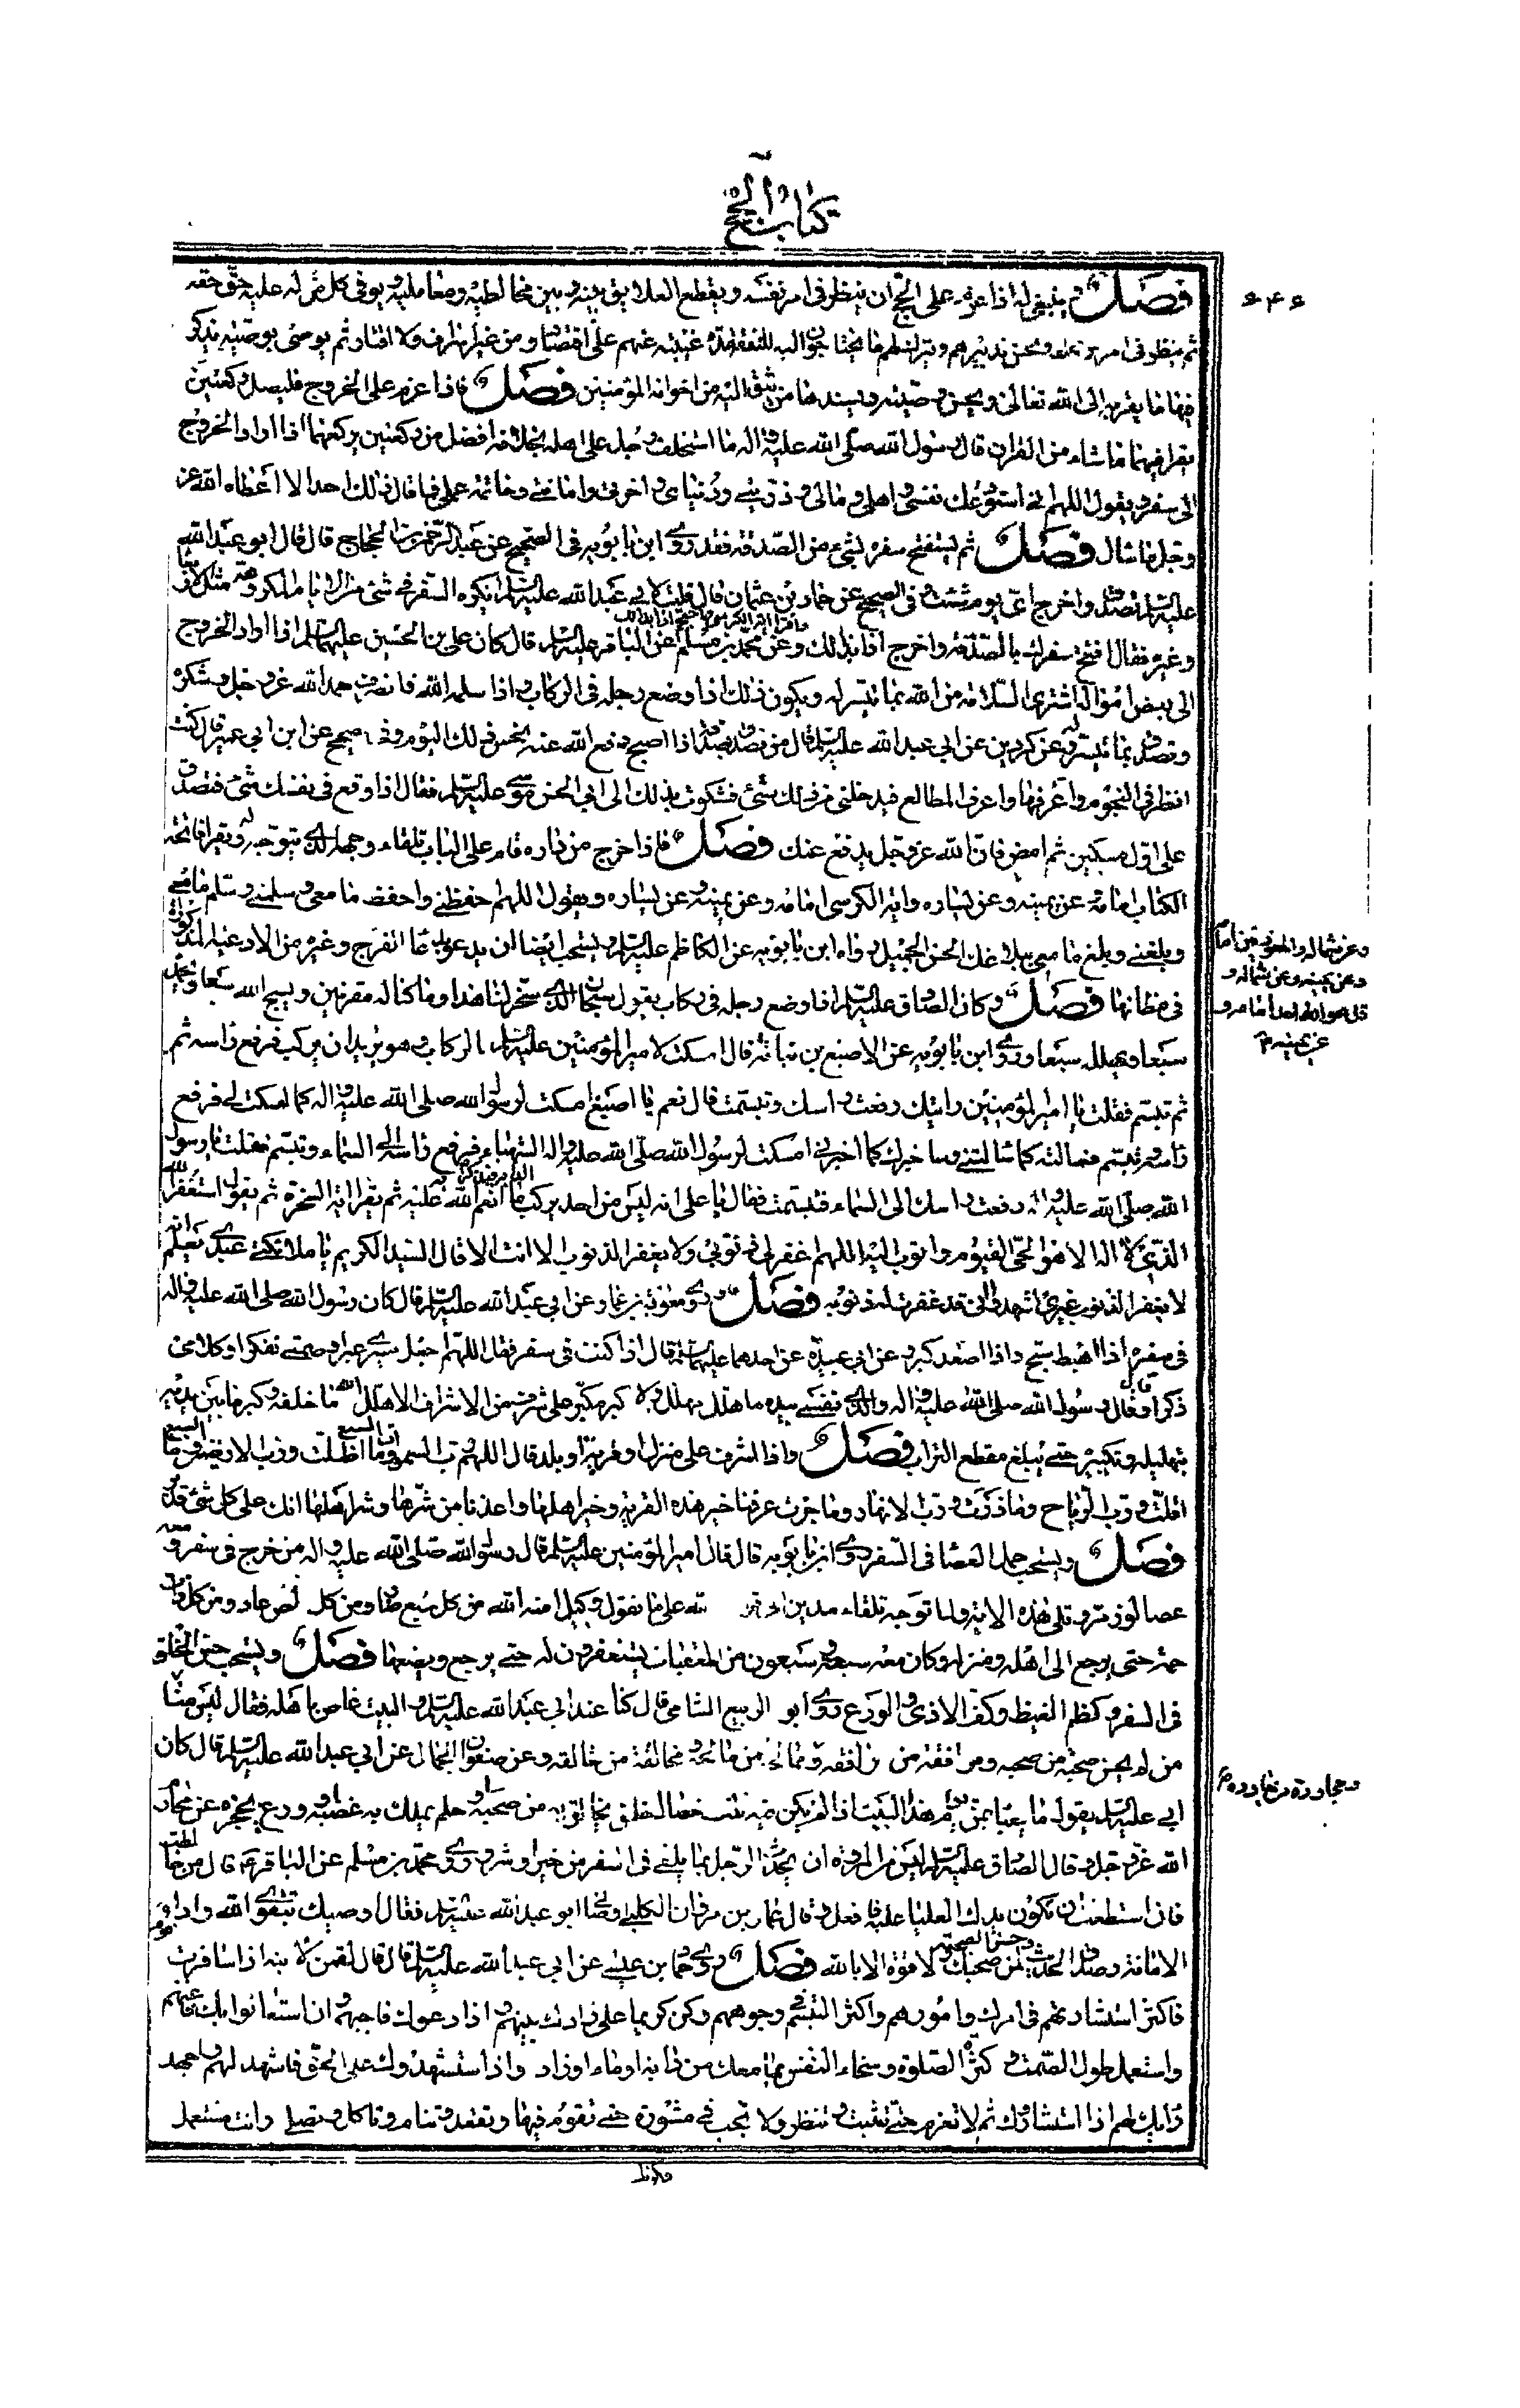 كتاب الحج
۶۴۶
فصل ثم ينبغى له اذا عزم على الحج ان ينظر فى امر نفسه ويقطع العلايق بينه وبين مخالطيه ومعامليه ويوفى كل من له عليه حق حقه
ثم ينظر فى امر من يخلفه ويحسن تدبيرهم ويترك لهم ما يحتاجون اليه للنفقة مدة غيبته عنهم على اقتصاد من غير اسراف ولا اقتار ثم يوصى بوصية يذكر
فيها ما يقربه الى الله تعالى ويحسن وصيته ويسندها من يثق اليه من اخوانه المؤمنين فصل فاذا عزم على الخروج فليصل ركعتين
يقرا فيهما ما شاء من القران قال رسول الله صلى الله عليه واله ما استخلف رجل على اهله بخلافة افضل من ركعتين يركعهما اذا اراد الخروج
الى سفر ويقول اللهم انى استودعك نفسى واهلى ومالى وذريتى ودنياى واخرتى وامانتى وخاتمة عملى فما قال ذلك احد الا اعطاه الله عز
وجل ما سال فصل ثم ليستفتح سفره بشىء من الصدقة فقد روى ابن بابويه فى الصحيح عن عبد الرحمن بن الحجاج قال قال ابو عبد الله
عليه السلم تصدق واخرج اى يوم شئت وفى الصحيح عن حماد بن عثمان قال قلت لابى عبد الله عليه السلم ايكره السفر فى شئ من الايام المكروهة مثل الاربعا
وغيره فقال افتتح سفرك بالصدقة واخرج اذا بدا لك واقرا اية الكرسى واحتجم اذا بدا لك وعن محمد بن مسلم عن الباقر عليه السلم قال كان على بن الحسين عليهما السلم اذا اراد الخروج
الى بعض امواله اشترى السلامة من الله بما تيسر له ويكون ذلك اذا وضع رجله فى الركاب واذا سلمه الله فانصرف حمد الله عز وجل وشكره
وتصدق بما تيسر له وعن كردين عن ابى عبد الله عليه السلم قال من تصدق بصدقة اذا اصبح دفع الله عنه نحس ذلك اليوم وفى الصحيح عن ابن ابى عمير قال كنت
انظر فى النجوم واعرفها واعرف الطالع فيدخلنى من ذلك شئ فشكوت ذلك الى ابى الحسن موسى عليه السلم فقال اذا وقع فى نفسك شئ فتصدق
على اول مسكين ثم امض فان الله عز وجل يدفع عنك فصل فاذا خرج من داره قام على الباب تلقاء وجهه الذى يتوجه له ويقرا فاتحة
الكتاب امامه وعن يمينه وعن يساره واية الكرسى امامه وعن يمينه وعن يساره ويقول اللهم احفظنى واحفظ ما معى وسلمنى وسلم ما معى
وبلغنى وبلغ ما معى ببلاغك الحسن الجميل رواه ابن بابويه عن الكاظم عليه السلم ويستحب ايضا ان يدعو بدعاء الفرج وغيره من الادعية المذكورة
فى مظانها فصل وكان الصادق عليه السلم اذا وضع رجله فى ركابه يقول سبحان الذى سخر لنا هذا وما كنا له مقرنين ويسبح الله سبعا ويحمد
سبعا ويهلل سبعا وروى ابن بابويه عن الاصبغ بن نباته قال امسكت لامير المؤمنين عليه السلم بالركاب وهو يريد ان يركب فرفع راسه ثم
ثم تبسم فقلت يا امير المؤمنين رايتك رفعت راسك وتبسمت قال نعم يا اصبغ امسكت لرسول الله صلى الله عليه واله كما امسكت لى فرفع
راسه وتبسم فسالته كما سالتنى وساخبرك كما اخبرنى امسكت لرسول الله صلى الله عليه واله الشهباء فرفع راسه الى السماء وتبسم فقلت يا رسول
الله صلى الله عليه واله رفعت راسك الى السماء فتبسمت فقال يا على انه ليس من احد يركب ما انعم الله عليه ثم يقرا اية السخرة ثم يقول استغفر الله
الذى لا اله الا هو الحى القيوم واتوب اليه اللهم اغفر لى ذنوبى ولا يغفر الذنوب الا انت الا قال السيد الكريم يا ملائكتى عبدى يعلم انه
لا يغفر الذنوب غيرى اشهدوا انى قد غفرت له ذنوبه فصل روى معوية بن عمار عن ابى عبد الله عليه السلم قال كان رسول الله صلى الله عليه واله
فى سفره اذا هبط سبح واذا صعد كبر وعن ابى عبيدة عن احدهما عليهما السلم قال اذا كنت فى سفر فقال اللهم اجعل مسيرى عبرا وصمتى تفكرا وكلامى
ذكرا وقال رسول الله صلى الله عليه واله والذى نفسى بيده ما هلل مهلل ولا كبر مكبر على شرف من الاشراف الا هلل الله ما خلفه وكبر ما بين يديه
بتهليله وتكبيره حتى يبلغ مقطع التراب فصل واذا اشرف على منزل او قرية او بلد قال اللهم رب السموات السبع وما اظلت ورب الارضين السبع وما
اقلت ورب الرياح وما ذرت ورب الانهار وما جرت عرفنا خير هذه القرية وخير اهلها واعذنا من شرها وشر اهلها انك على كل شئ قدير
فصل ويستحب حمل العصا فى السفر روى ابن بابويه قال قال امير المؤمنين عليه السلم قال رسول الله صلى الله عليه واله من خرج فى سفر ومعه
عصا لوز مر وتلى هذه الاية ولما توجه تلقاء مدين الى قوله الله على ما نقول وكيل امنه الله من كل سبع ضار ومن كل لص عاد ومن كل ذات
حمة حتى يرجع الى اهله ومنزله وكان معه سبعة وسبعون من المعقبات يستغفرون له حتى يرجع ويضعها فصل ويستحب حسن التخلق
فى السفر وكظم الغيظ وكف الاذى والورع روى ابو الربيع الشامى قال كنا عند ابى عبد الله عليه السلم والبيت غاص باهله فقال ليس منا
من لم يحسن صحبة من صحبه ومرافقة من رافقه وممالحة من مالحه ومخالقة من خالقه وعن صفوان الجمال عن ابى عبد الله عليه السلم قال كان
ابى عليه السلم يقول ما يعبأ بمن يؤم هذا البيت اذا لم يكن فيه ثلث خصال خلق يخالق به من صحبه او حلم يملك به غضبه او ورع يحجزه عن محارم
الله عز وجل وقال الصادق عليه السلم ليس من المروة ان يحدث الرجل بما يلقى فى السفر من خير او شر وروى محمد بن مسلم عن الباقر ع قال من خالطت
فان استطعت ان تكون يدك العليا عليه فافعل وقال عمار بن مروان الكلبى اوصانى ابو عبد الله عليه السلم فقال اوصيك بتقوى الله واداء
الامانة وصدق الحديث وحسن الصحبة لمن صحبك ولا قوة الا بالله فصل روى حماد بن عيسى عن ابى عبد الله عليه السلم قال قال لقمن لابنه اذا سافرت مع قوم
فاكثر استشارتهم فى امرك وامورهم واكثر التبسم فى وجوههم وكن كريما على زادك بينهم واذا دعوك فاجبهم وان استعانوا بك فاعنهم
واستعمل طول الصمت وكثرة الصلوة وسخاء النفس بما معك من دابة او ماء او زاد واذا استشهدوك على الحق فاشهد لهم واجهد
رايك لهم اذا استشاروك ثم لا تعزم حتى تثبت وتنظر ولا تجب فى مشورة حتى تقوم فيها وتقعد وتنام وتاكل وتصلى وانت مستعمل
وعن شماله والمعوذتين امامه
وعن يمينه وعن شماله و
قل هو الله احد امامه و
عن يمينه م
ومجاورة من جاوره م